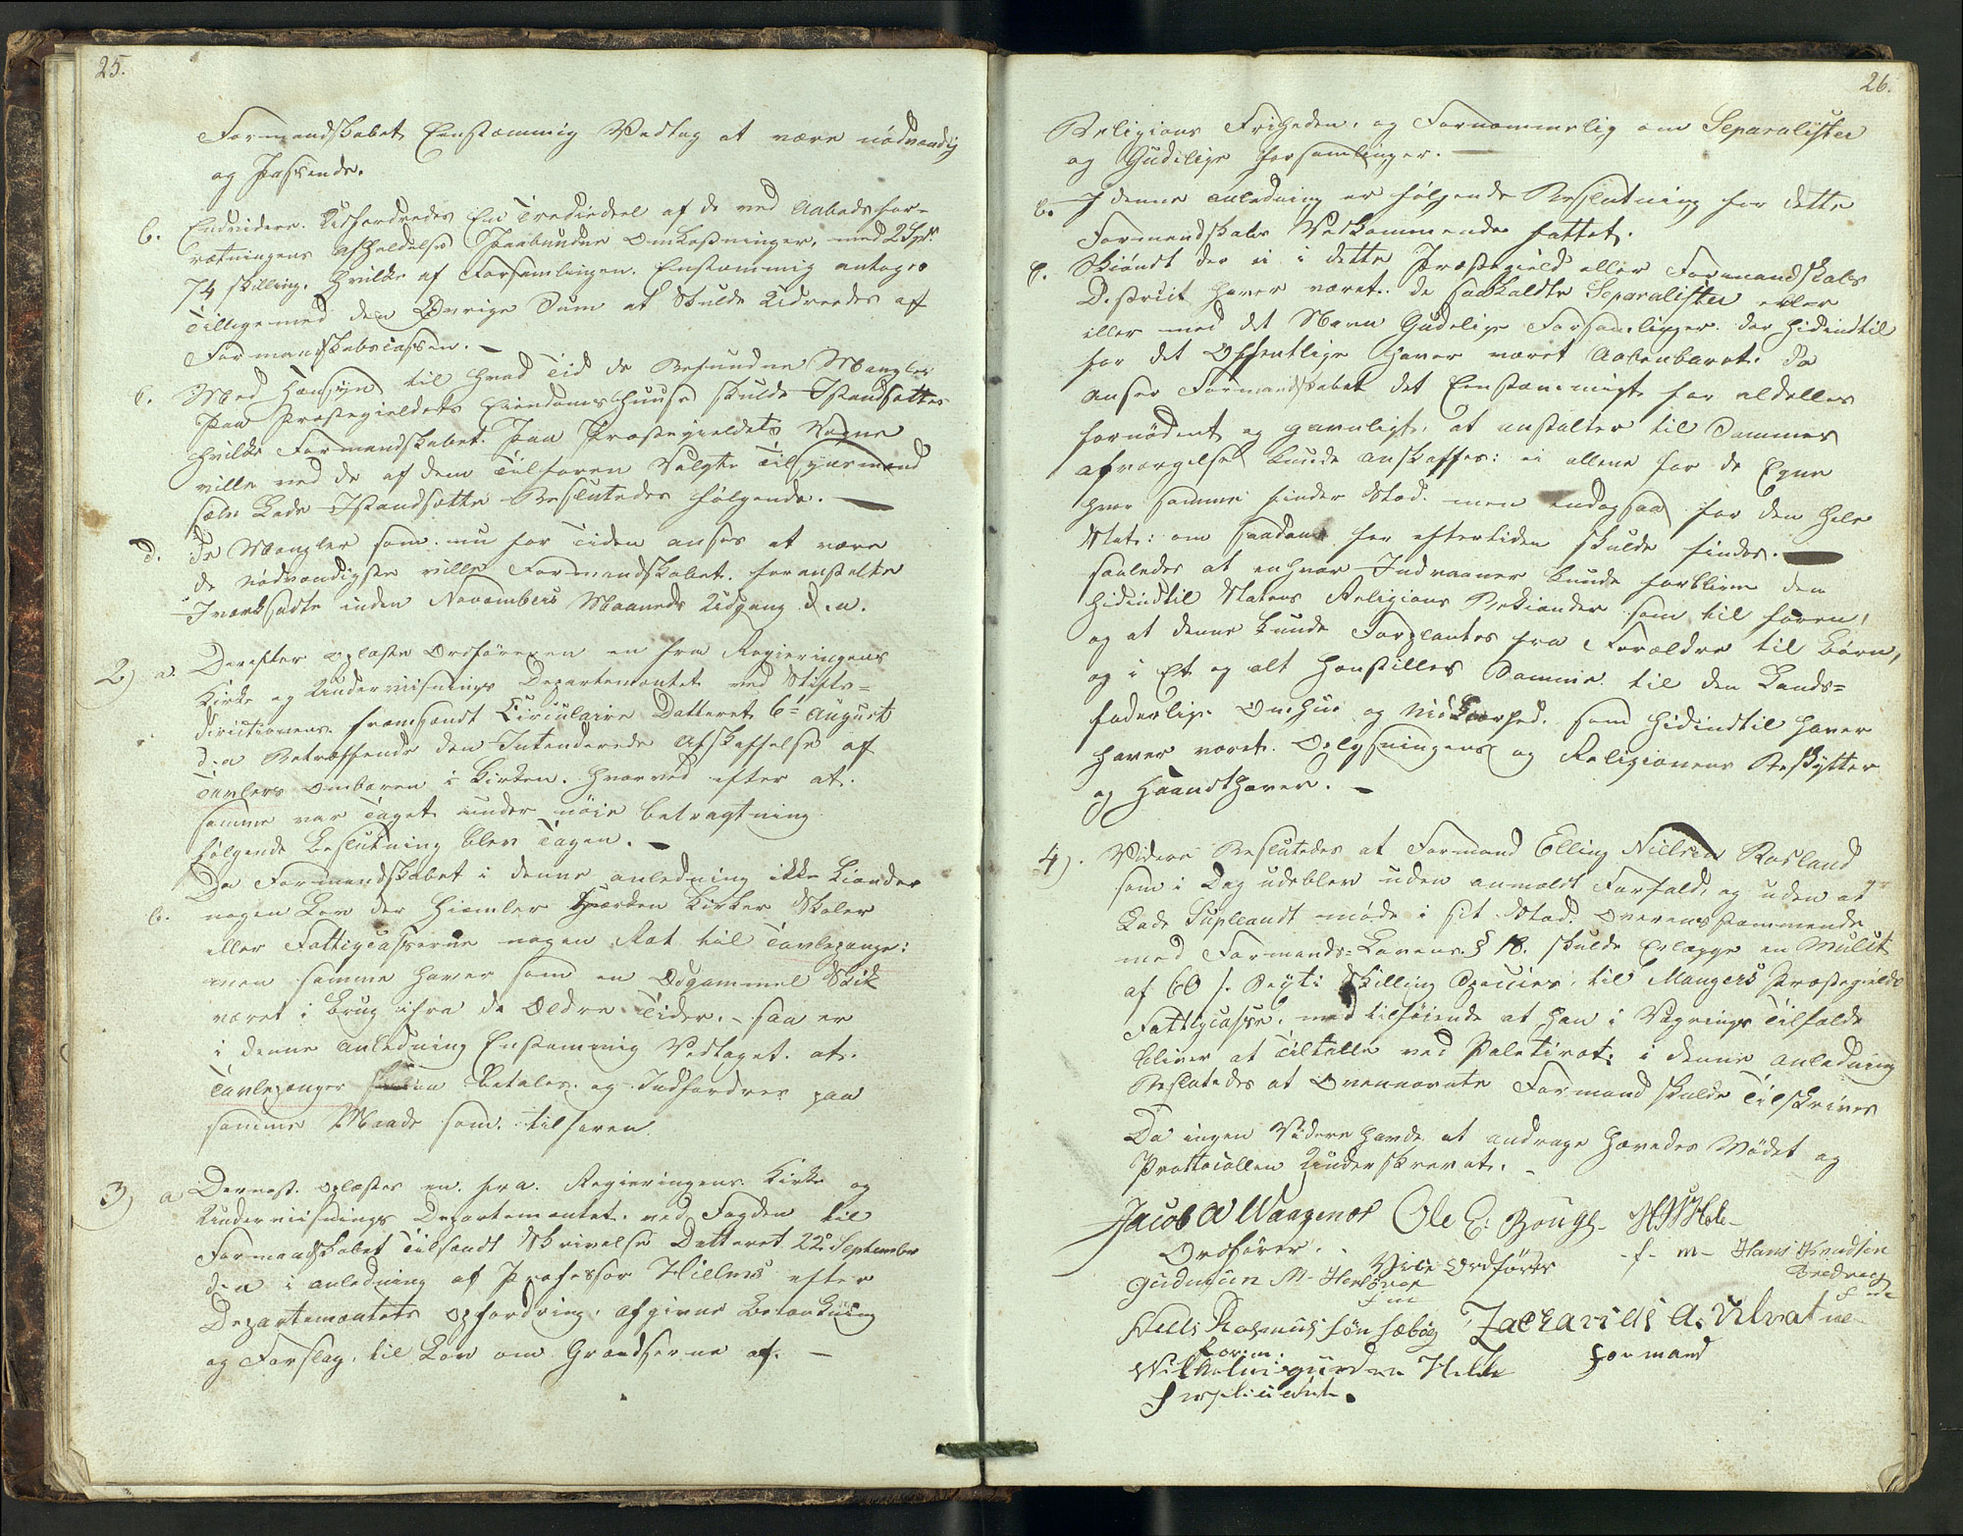 25.
Formandskabet Eenstæmmig Vedtog at være nødvændig
og Passende.
b. Endvidere Udfordredes En Trediedeel af de ved Aabodsfor-
rætningens Afholdelse Paabundne Omkostninger, med 2 Spd.
74 skilling. Hvilke af Forsamlingen. Enstæmmig antoges
Tilligemed den Øvrige Sum at skulde Udredes af
Formandskabscassen. –
c. Med Hensyn til hvad Tid de Befundne Mangler
Paa Præstegieldets Eiendoms Huuse skulde Istandsættes
hvilke Formandskabet. Paa Præstegieldets Vegne
ville ved de af dem Tilforen Valgte Tilsynsmænd
selv Lade Istandsætte Besluttedes følgende. –
d. De Mangler som nu for Tiden anses at være
de Nødvændigste ville Formandskabet. foranstalte
Iværksadte inden Novembers Maaneds Udgang d. A.
2) a. Derefter oplæste Ordføreren en fra Regieringens
Kirke og Underviisnings Departementet ved Stifts=
directionens. fremsendt Circulaire Datteret 6te August
d. A Betræffende den Intenderede Afskaffelse af
Tavlers Ombæren i Kirken. hvorved efter at.
samme var Taget under nøie betragtning
følgende Beslutning blev Tagen. –
b. Da Formandskabet i denne anledning ikke kiænder
nogen Lov der hiemler hverken Kirker Skoler
eller Fattigcasserne nogen Ret til Tavlepenge:
men samme haver som en Odgammel Skik
været i Brug ifra de Ældre Tider. – saa er
i denne Anledning Enstemmig Vedtaget. at.
Tavlepenger betales og Indfordres paa
samme Maade som tilforen.
3) a Dernæst. oplæstes en. fra. Regieringens Kirke og
Underviisnings Departementet. ved Fogden til
Formandskabet Tilsendt Skrivelse Datteret 22de September
d. A i anledning af Professor Hielms efter
Departementets opfordring. afgivne Betænkning
og Forslag. til Lov om Grændserne af. –
26.
Religions Friheden. og Fornemmelig om Separatister
og Gudelige forsamlinger. –
b. I denne anledning er følgende Beslutning for dette
Formandskabs Vedkommende fattet.
c. Skiøndt der ei i dette Præstegield eller Formandskabs
District haver været. de saakaldte Separatister eller
eller med det Navn Gudelige Forsamlinger. der hidindtil
for det Offentlige haver været Aabenbaret. Da
anser Formandskabet det Eenstæmmigt for aldeles
fornødent og gavnligt. at anstalter til Sammes
afværgelse kunde anskaffes: ei allene for de Egne
hvor samme finder Stæd. men endogsaa for den hele
Stat: om saadant for eftertiden skulde findes. –
saaledes at enhver Indvaaner kunde forblive den
hidindtil Statens Religions Bekiender som til foren,
og at denne kunde Forplantes fra Forældre til Børn,
og i Et og alt henstilles Samme til den Lands=
faderlige Omhue og Nidkierhed. som hidindtil haver
haver været. Oplysningens og Religionens Beskytter
og Haandthæver. –
4). Videre Besluttedes at Formand Elling Nielsen Rosland
som i Dag udeblev uden anmældt Forfald, og uden at
Lade Supleandt møde i sit Stæd. Overensstemmende
med Formands=Lovens § 18. skulde Erlægge en Mulct
af 60 s. Sexti Skilling Species, til Mangers Præstegields
Fattigcasse. med tilføiende at han i Vægrings Tilfælde
bliver at Tiltalle ved Poletiret. i denne anledning
Besluttedes at Ovennævnte Formand skulde Tilskrives
Da ingen Videre havde at andrage hævedes Mødet og
Prottocollen Underskrevet. –
Jacob A Waagenes Ole E: Bougs-
Ordfører. Vice Ordfører
f- m- Hans Knudsen
Gudmun M-
Niels Rasmussøn Sæbøe Zacharias A:
Form: formand
Helle
Suplicandt.